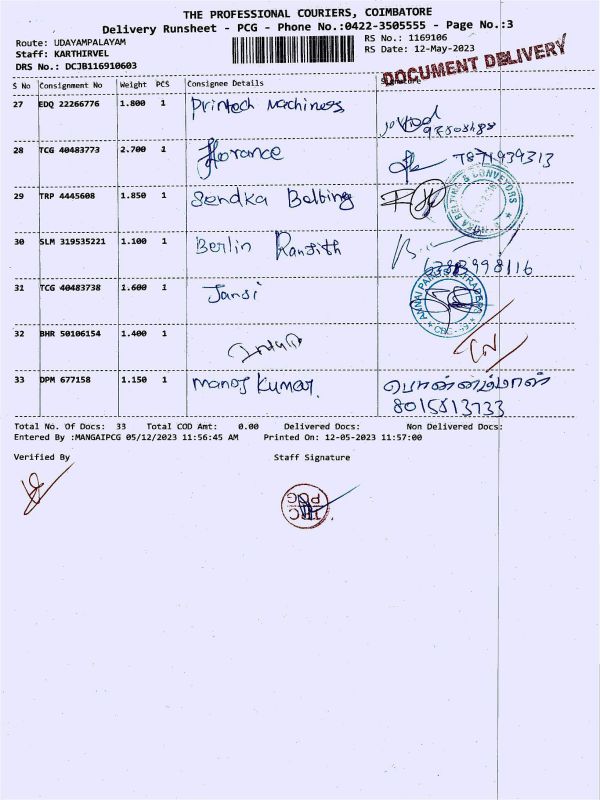 THE PROFESSIONAL COURIERS, COIMBATORE
Delivery Runsheet - PCG - Phone No.:0422-3505555 - Page No.:3
Route: UDAYAMPALAYAM
RS No.: 1169106
Staff: KARTHIRVEL
RS Date: 12-May-2023
DRS No.: DCJB116910603
DOCUMENT DELIVERY
S No Consignment No Weight PCS Consignee Details Signature
27 EDQ 22266776 1.800 1 Printech Machiness
28 TCG 40483773 2.700 1 florance 7871939313
29 TRP 4445608 1.850 1 Sendka Belting
30 SLM 319535221 1.100 1 Berlin Ranjith
31 TCG 40483738 1.600 1 Jansi
32 BHR 50106154 1.400 1
33 DPM 677158 1.150 1 manoj kumar.
8015813733
Total No. Of Docs: 33 Total COD Amt: 0.00 Delivered Docs: Non Delivered Docs:
Entered By :MANGAIPCG 05/12/2023 11:56:45 AM Printed On: 12-05-2023 11:57:00
Verified By Staff Signature